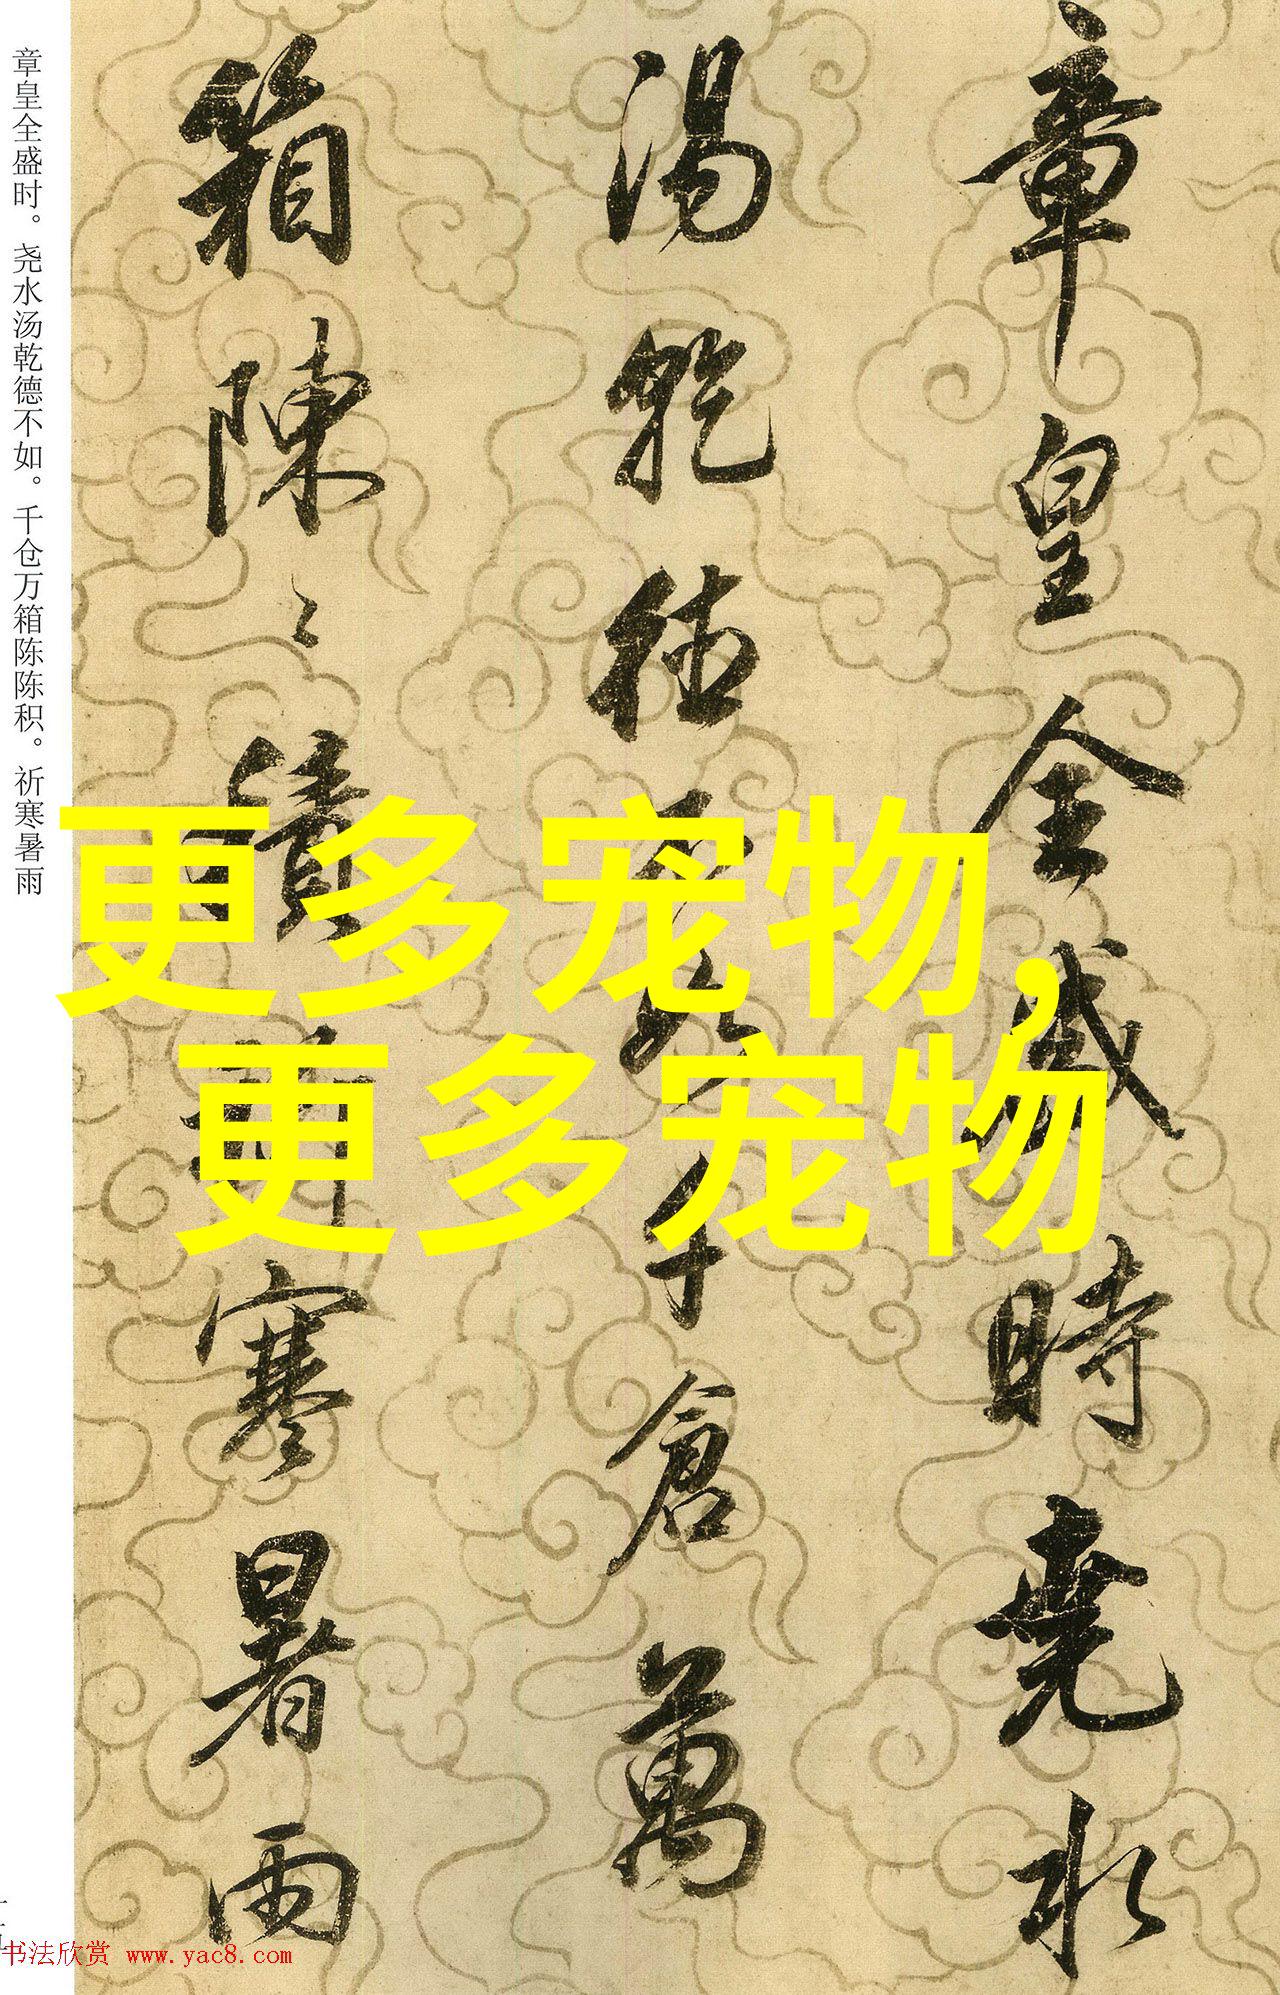 章皇全盛時堯水
湯乾德不如千倉萬
箱陳〻積祈寒暑雨
章皇全盛时。尧水汤乾德不如。千仓万箱陈陈积。祈寒暑雨
更多宠物,
更多宠物
书法欣赏 www.yac8.com